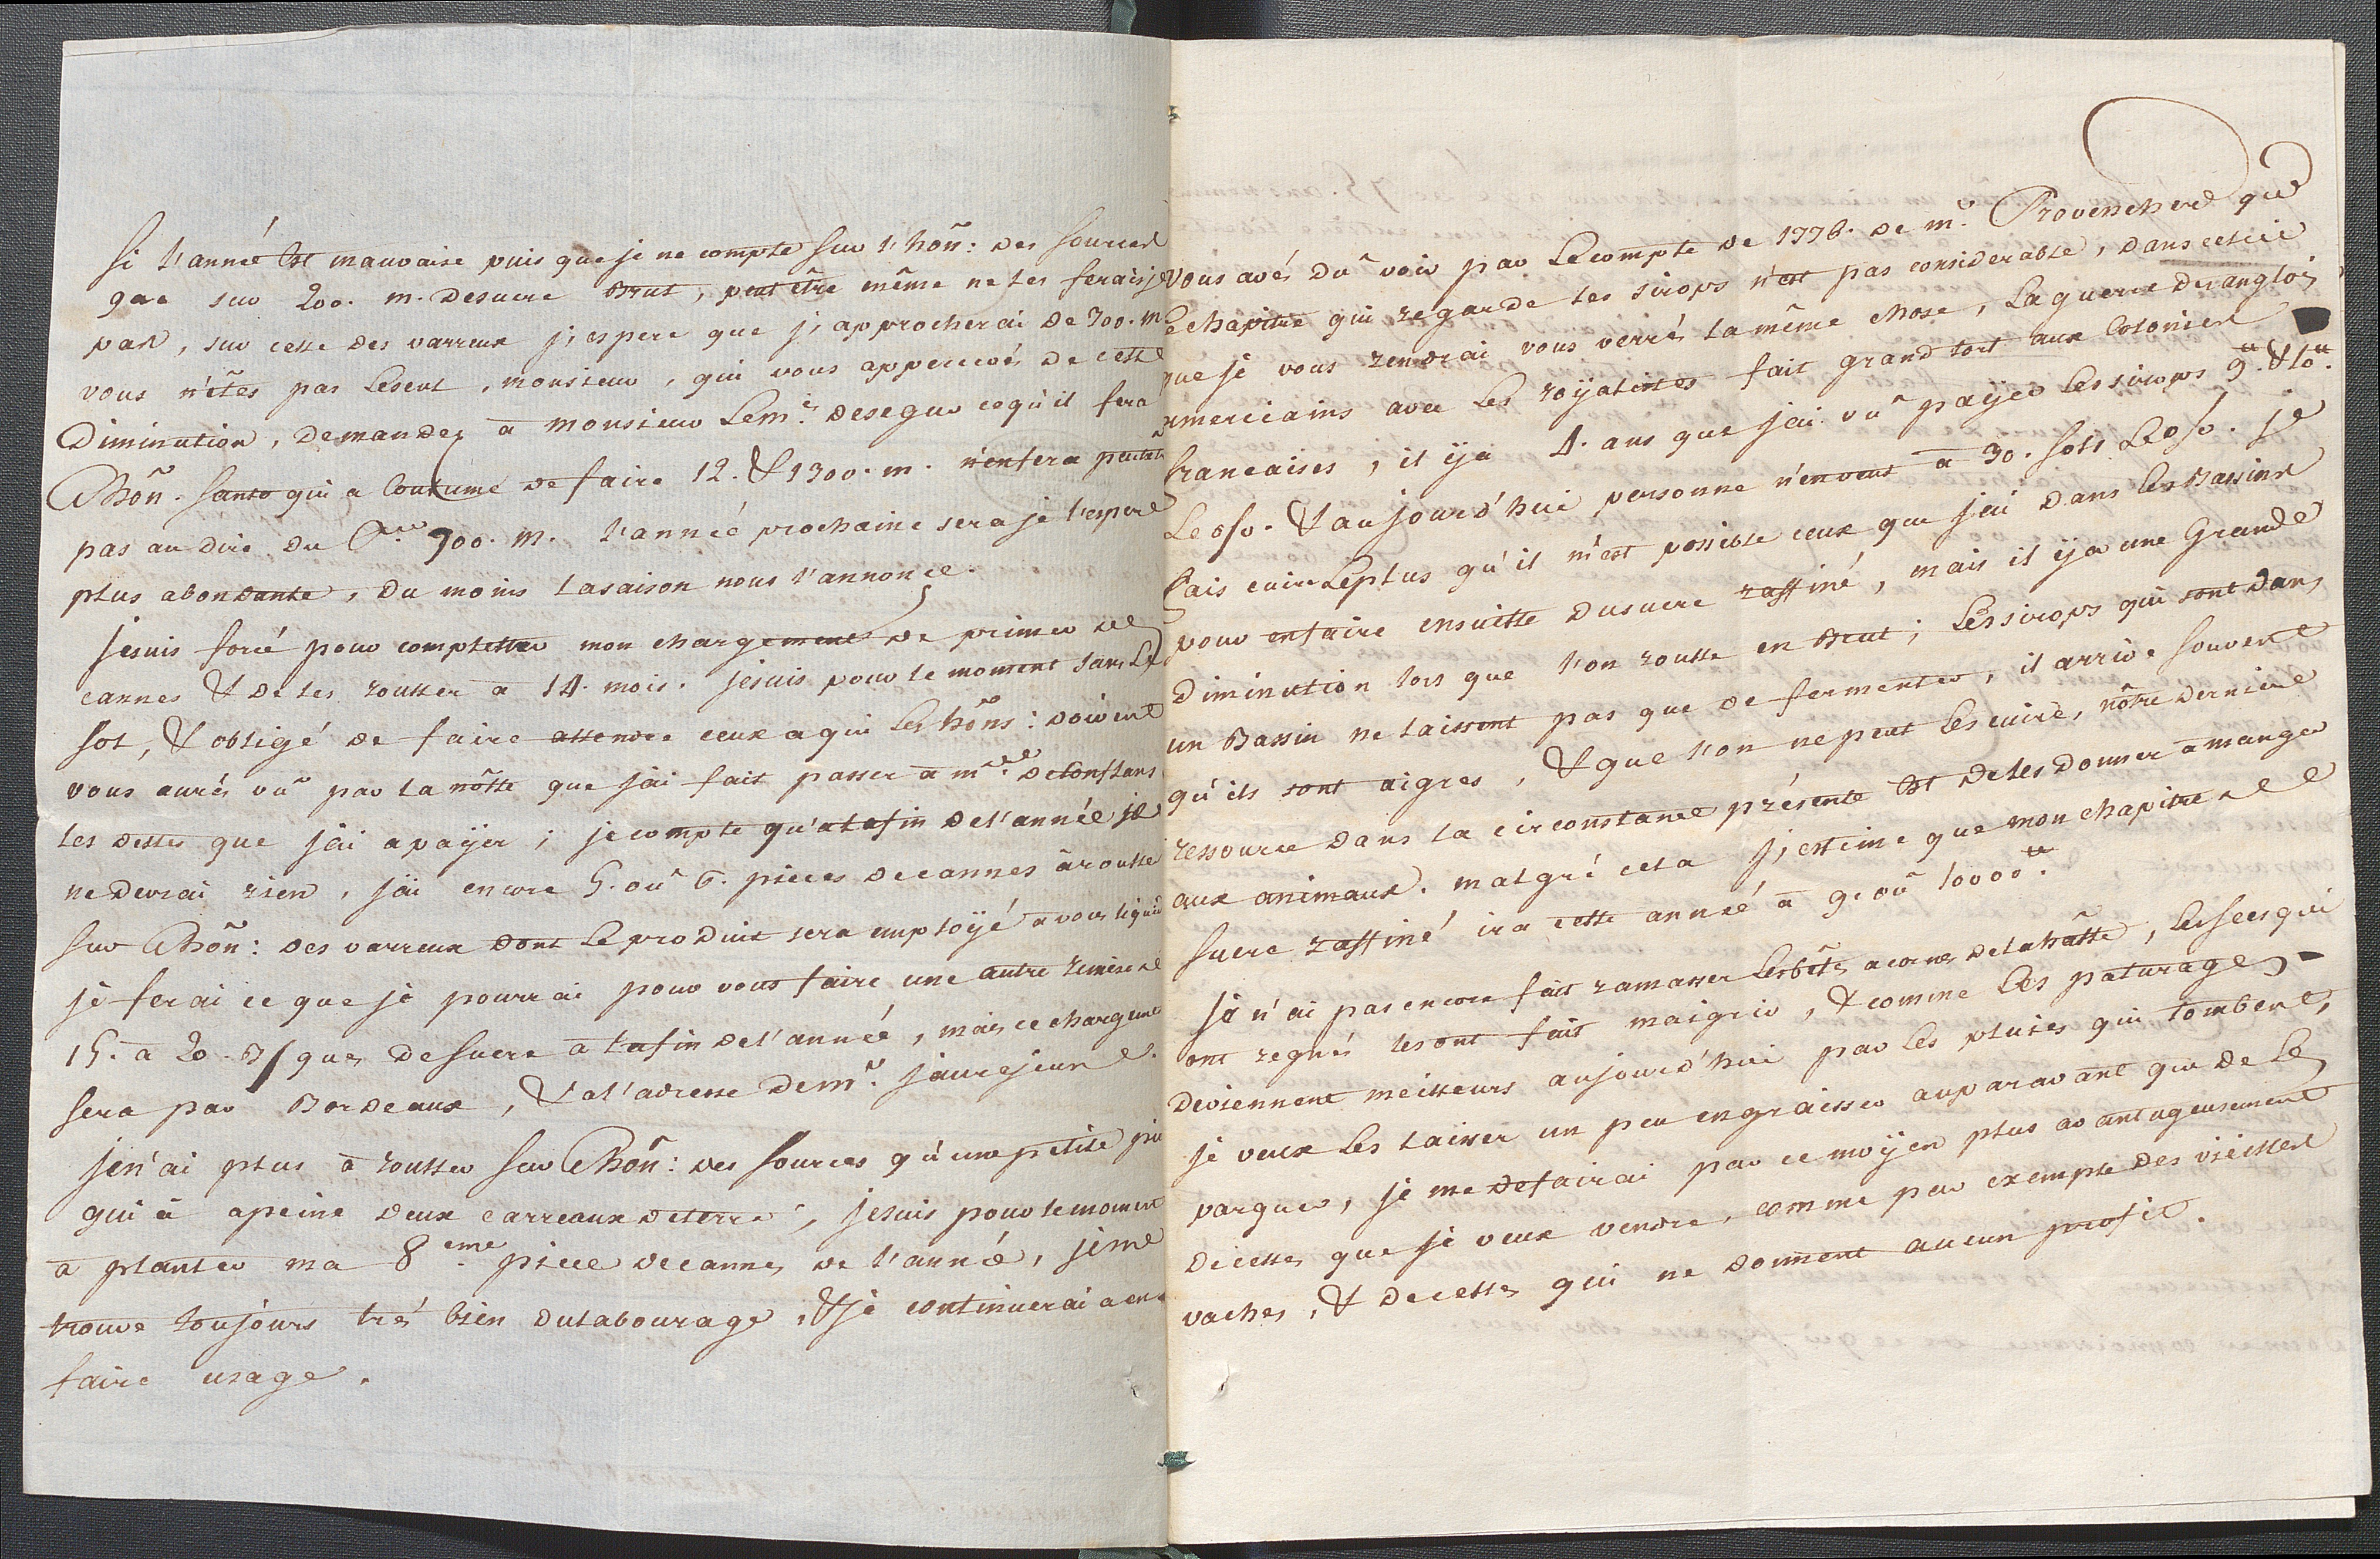 Si l'anneé Est mauvaise puis que je ne compte Sur l'hõn: des Sources
que sur 200. m. Desucre Brut, peut être même ne les feraisje
pas, sur celle des varreux j'espere que j'approcherai de 300. m.
vous n'êtes pas Leseul, monsieur, qui vous appercevés de cette
Diminution, demandez à monsieur Lem.is Desegur cequ'il fera
Lhõn. Santo qui a Coutume de faire 12. & 1300. m. n'enfera peutetre
pas au dire du 900. m. l'anneé prochaine sera je l'espere
plus abondante, Du moins lasaison nous l'annonce.
Jesuis forcé pour completter mon chargement de primer des
cannes & deles rouller à 14. mois. Jesuis pour le moment sans Le
Sol, & obligé de faire attendre ceux aqui Les hõns: doivent
vous aurés vû par la nôtte que j'ai fait passer à m.de Deconflans
les dettes que j'ai apaÿer; jecompte qu'alafin del'année je
nedevrai rien, j'ai encore 5. où 6. pieces decannes àrouller
Sur Lhõn: des varreux dont Leproduit sera emploÿé avous liquider
je ferai ce que je pourrai pour vous faire une autre remise de
15. à 20. B/ques Desucre à lafin del'anneé, mais cechargement
Sera par Bordeaux, & al'adresse dem.r Jaurejeune.
Jen'ai plus à rouller Sur Lhõn: des Sources qu'une petite piece
qui à apeine deux carreaux deterre, jesuis pour lemoment
à planter ma 8.eme piece decannes de l'anneé, jeme
trouve toujours trés bien dulabourage, & je continuerai a en
faire usage.
Vous avés dû voir par Lecompte de 1776. de m.r Provencher que
Lechapitre qui regarde les sirops n'est pas considerable, dans celui
que je vous rendrai vous verrés la même chose, Laguerre desanglois
americains avec Les roÿalistes fait grand tort aux Colonies
francaises, il ÿa 4. ans que j'ai vû paÿer Les sirops 9.# & 10.#
Leo/o. & aujourd'hui personne n'enveut à 30. Sols Leo/o. je
fais cuire Leplus qu'il m'est possible ceux que j'ai dans les Bassins
pour enfaire ensuitte dusucre raffiné, mais il ÿa une Grande
Diminution lors que l'on roulle en Brut; Les sirops qui sont dans
un Bassin ne laissent pas que de fermenter, il arrive souvent
qu'ils sont aigres, & que l'on nepeut Les cuire, nôtre derniere
ressource dans la circonstance présente Est deles donner à manger
aux animaux. malgré cela j'estime que mon chapitre de
Sucre raffiné ira cette anneé à 9. où 10000.#
Je n'ai pas encore fait ramasser Lesbêtes acornes delahatte, Lessecs qui
ont regnés lesont fait maigrir, & comme Les paturages
deviennent meilleurs aujourd'hui par Les pluies qui tombent,
je veux Les laisser un peu engraisser auparavant que de Les
parquer, je me defairai par ce moÿen plus avantageusement
decelles que je veux vendre, comme par exemple des vieilles
vaches, & decelles qui ne donnent aucun profit.